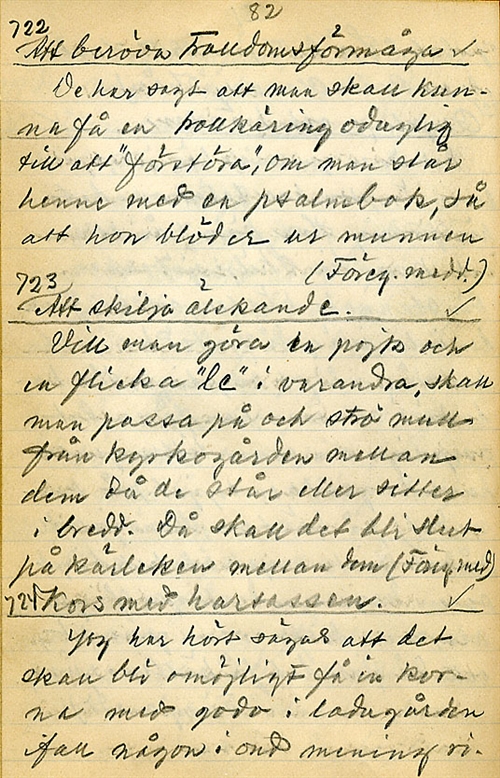 82
722
Att beröva Trolldomsförmåga ✓
De har sagt att man skall kun-
na få en trollkäring oduglig
till att "förstöra", om man slår
henne med en psalmbok, så
att hon blöder ur munnen
(Föreg. medd.)
723
Att skilja älskande. ✓
Vill man göra en pojk och
en flicka "le" i varandra, skall
man passa på och strö mull
från kyrkogården mellan
dem då de står eller sitter
i bredd. Då skall det bli slut
på kärleken mellan dem (Föreg. med)
724 Kors med harsassen. ✓
Jag har hört sägas att det
skall bli omöjligt få in kor-
na med godo i ladugården
ifall någon i ond mening ri-